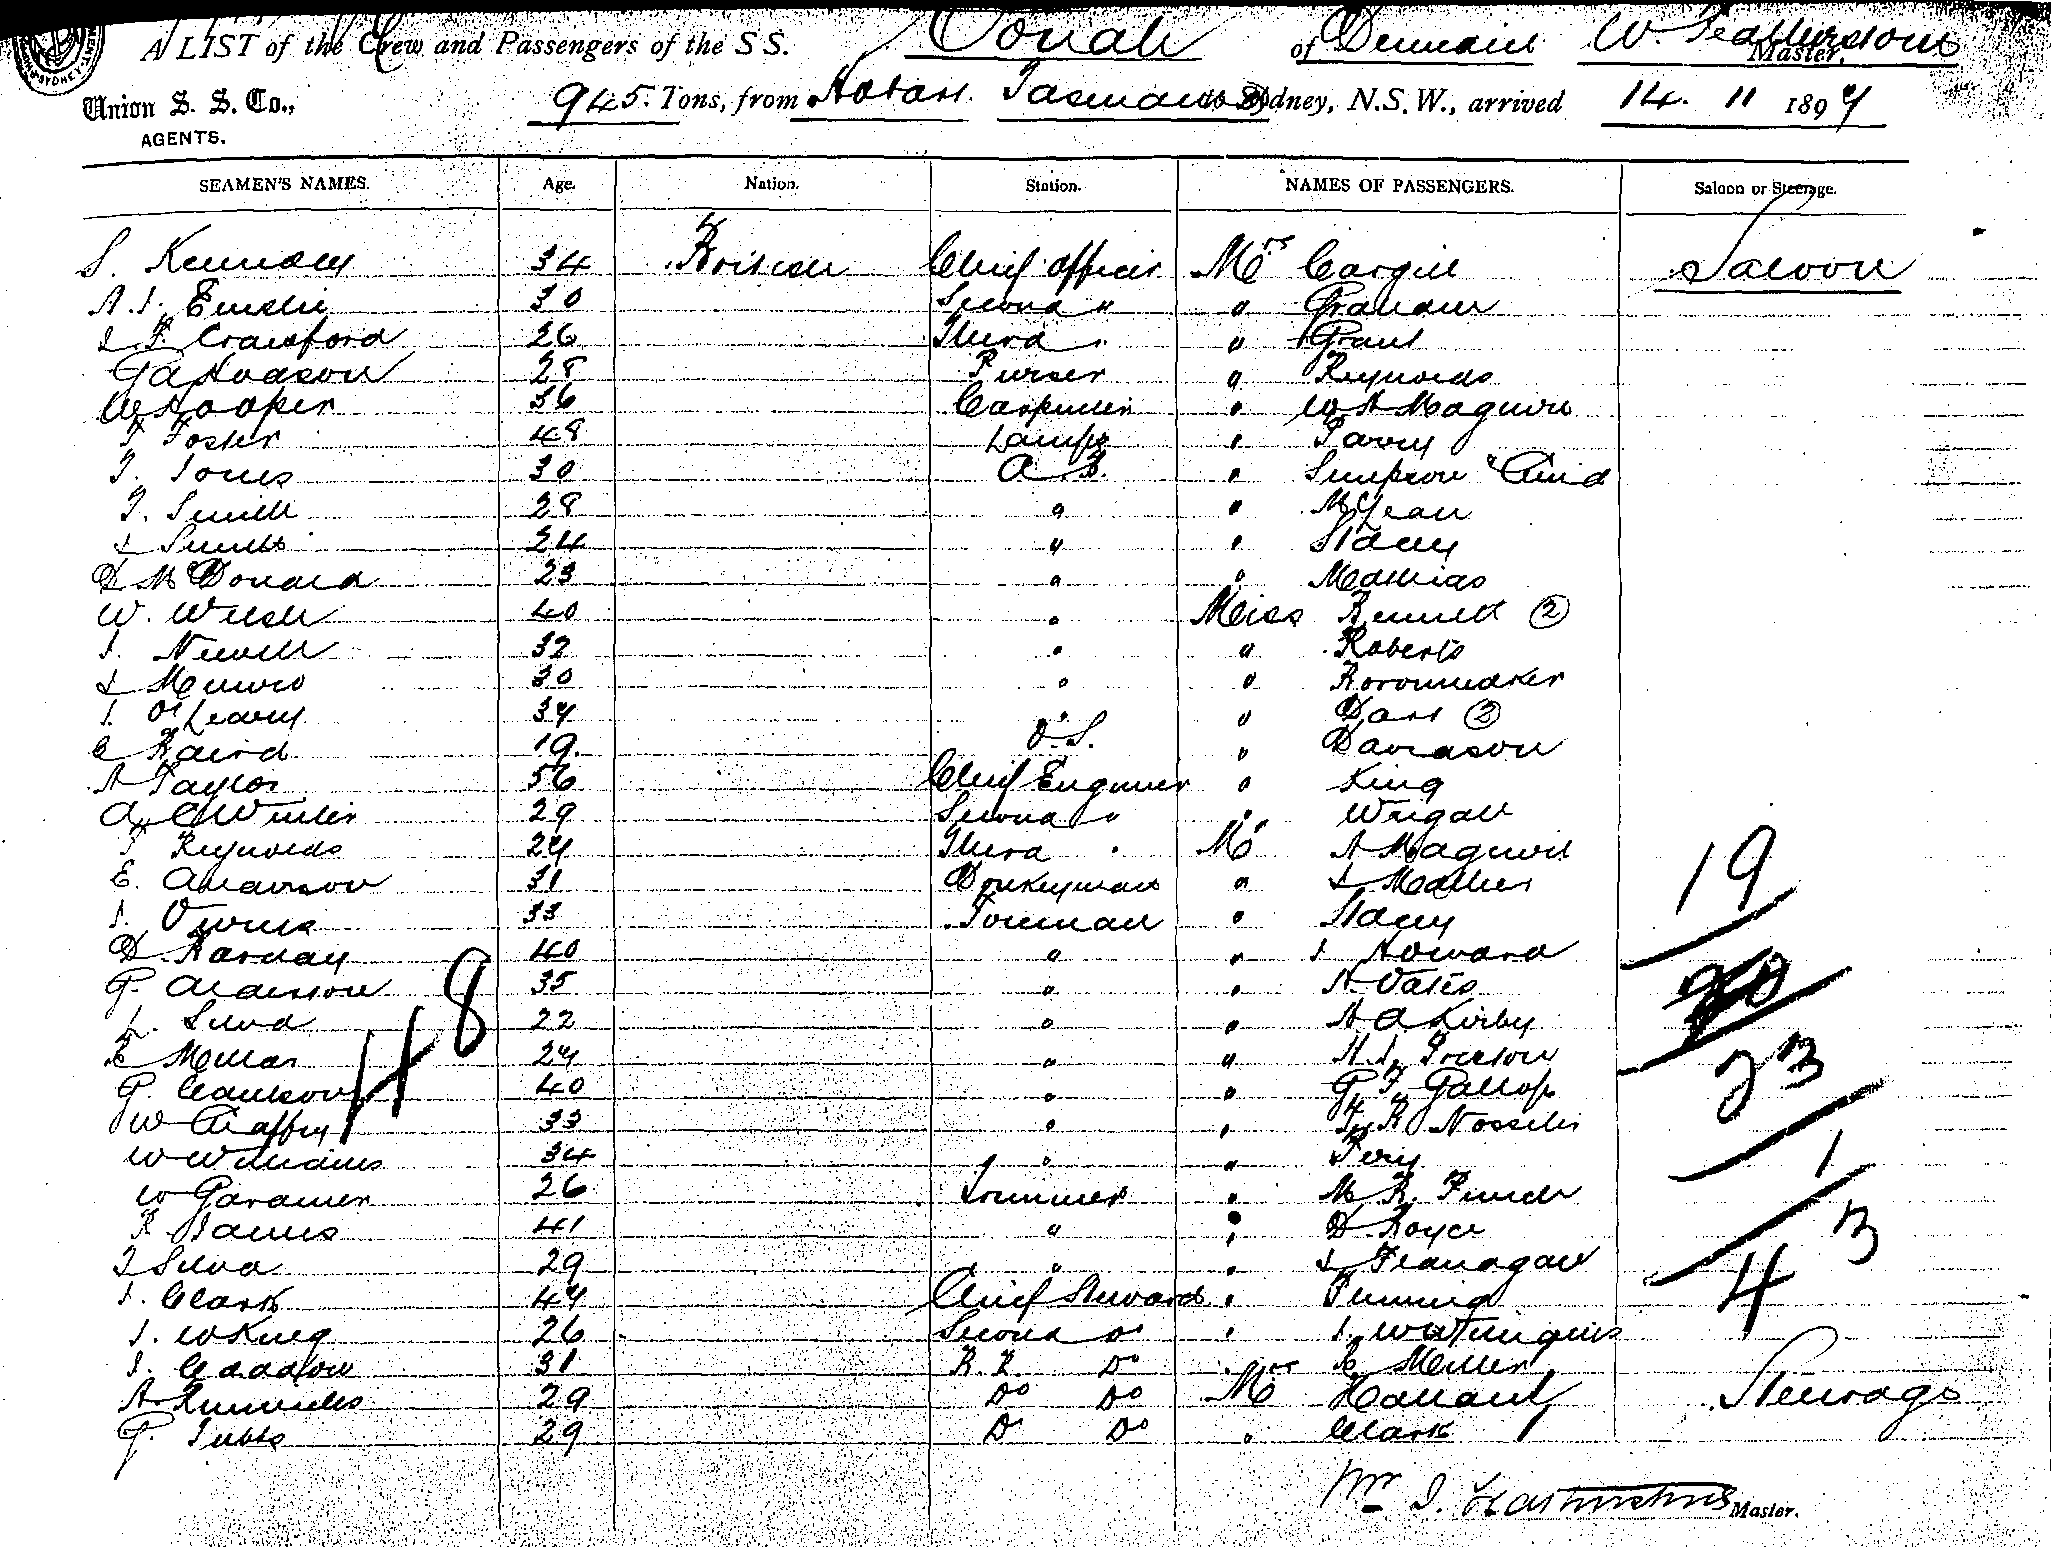 A LIST of the Crew and Passengers of the S S. Oonah of Dunedin W. Featherstone Master.
Union S. S. Co., 945 Tons, from Hobart Tasmania to Sydney, N.S.W., arrived 14. 11 1897
AGENTS.
SEAMEN'S NAMES. Age. Nation. Station. NAMES OF PASSENGERS. Saloon or Steerage.
S. Kennedy 34 British Chief officer Mrs Cargill Saloon
30 Second " " Graham
Crawford 26 Third " " Grant
G A Hodson 28 Purser " Reynolds
Hooper 36 Carpenter " W H Maguire
F Foster 48 Lamps " Parry
T. Jones 30 A.B. " Simpson & Child
T. Smith 28 " " McLean
J Smith 24 " " Stacey
D McDonald 23 " " Mathias
W. Welsh 40 " Miss Bennett 2
J. Newell 32 " " Roberts
J Munro 30 " "
J. O'Leary 34 " " Dart 2
C Baird 19. O.S. " Davidson
A Taylor 56 Chief Engineer " King
29 Second " " Weigall
F Reynolds 24 Third " Mr A Maguire
E. Anderson 31 Donkeyman " J Mather
J. Owens 33 Foreman " Stacey
D. Harday 40 " " J Howard
G. Anderson 35 " " H Oates
L. Silva 22 " " H A Kirby
R Millar 24 " "
G. 40 " " G F Gallop
W Chaffey 33 " "
W Williams 34 " " Pery
W Gardiner 26 Trimmer " M R. Finch
R James 41 " " D Boyce
J Silva 29 " " J Flanagan
J. Clark 44 Chief Steward "
J. W King 26 Second Do "
J. 31 B. R. Do " R Miller
29 Do Do Mrs Hallard Steerage
G. Tubbs 29 Do Do " Clark
48
19
20
23
1
43
Wm J. Featherstone Master.